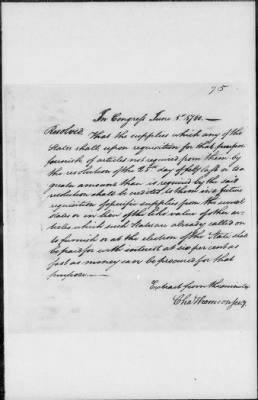 75
In Congress June 1st 1780. —
Resolved That the supplies which any of the
States shall, upon requisition for that purpose
furnish of articles not required from them by
the resolution of the 25th day of feby last or to a
greater amount than is required by the said
resolution shall be credited to them in a future
requisition of specific supplies from the several
states or in lieu of the like value of other ar-
ticles which such States are already called on
to furnish or at the election of the State shall
be paid for with interest at six per cent as
fast as money can be procured for that
purpose. —
Extract from the minutes
Cha Thomson secy